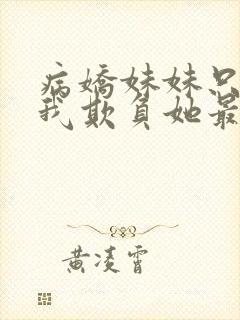 病嬌妹妹只
我欺負她最
黃凌霄